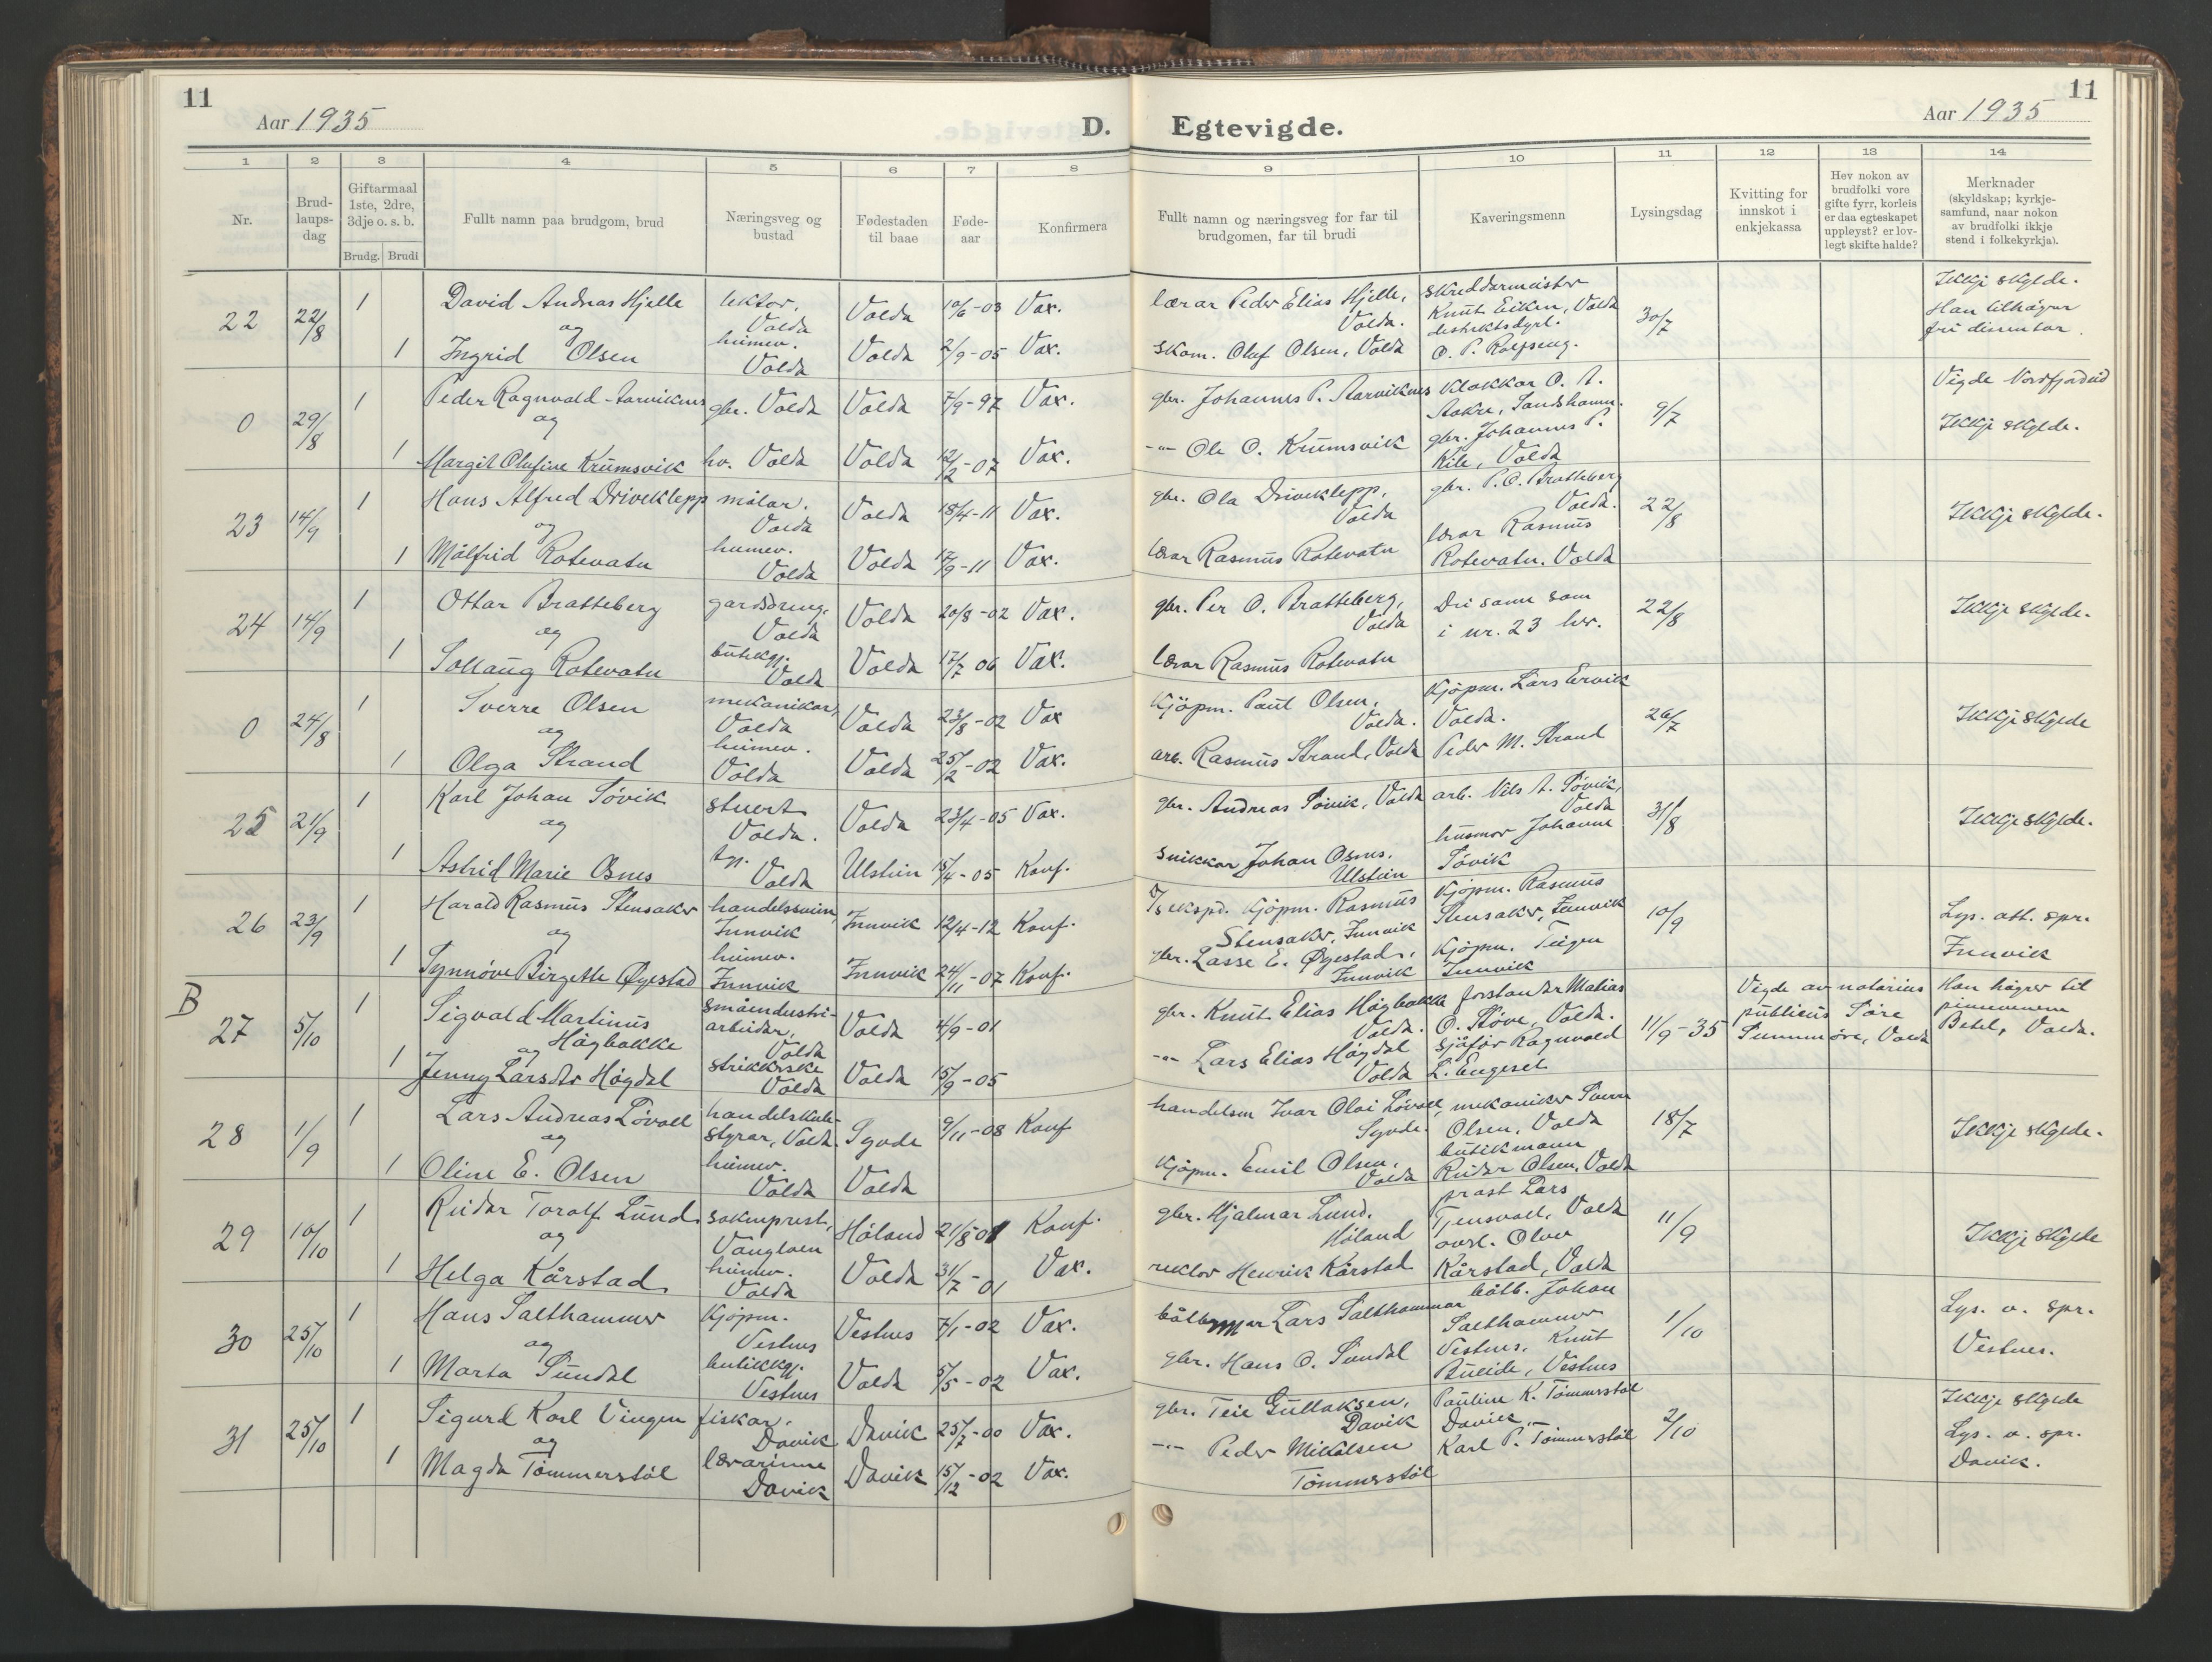 11
Aar 1935
D. Egtevigde.
Aar 1935
11
1 2 3 4 5 6 7 8 9 10 11 12 13 14
Nr.
Brud-
laups-
dag
Giftarmaal
1ste, 2dre,
3dje o. s. b.
Brudg. Brudi
Fullt namn paa brudgom, brud
Næringsveg og
bustad
Fødestaden
til baae
Føde-
aar
Konfirmera
Fullt namn og næringsveg for far til
brudgomen, far til brudi
Kaveringsmenn
Lysingsdag
Kvitting for
innskot i
enkjekassa
Hev nokon av
brudfolki vore
gifte fyrr, korleis
er daa egteskapet
uppløyst? er lov-
legt skifte halde?
Merknader
(skyldskap; kyrkje-
samfund, naar nokon
av brudfolki ikkje
stend i folkekyrkja).
22 22/8 1 David Andreas Hjelle lektor, Volda Volda 10/6-03 Vax. lærar Peder Elias Hjelle, Volda. skreddarmeister Knut Eiken, Volda 30/7 Ikkje skylde. Han tilhøyrer
og
1 Ingrid Olsen heimev. Volda Volda 2/9-05 Vax. skom. Olaf Olsen, Volda O. P.
0 29/8 1 Peder Ragnvald Aarviknes gbr. Volda Volda 7/9-97 Vax. gbr. Johannes P. Aarviknes klokkar O. A. Aakre, Sandshamn. 9/7 Vigde Nordfjordeid
og
1 Margit Olufine Krumsvik hv. Volda Volda 12/2-07 Vax. -"- Ole O. Krumsvik gbr. Johannes P. Kile, Volda Ikkje skylde.
23 14/9 1 Hans Alfred Driveklepp målar. Volda Volda 18/4-11 Vax. gbr. Ola Driveklepp, Volda gbr. P. O. Bratteberg Volda. 22/8 Ikkje skylde.
og
1 Målfrid Rotevatn heimev. Volda Volda 17/9-11 Vax. lærar Rasmus Rotevatn lærar Rasmus Rotevatn, Volda
24 14/9 1 Ottar Bratteberg gardsdreng, Volda Volda 20/8-02 Vax. gbr. Per O. Bratteberg, Volda Dei same som i nr. 23 her. 22/8 Ikkje skylde.
og
1 Sollaug Rotevatn butikkj. Volda Volda 17/7 06 Vax. lærar Rasmus Rotevatn
0 24/8 1 Sverre Olsen mekanikar, Volda Volda 23/8-02 Vax Kjøpm. Paul Olsen, Volda. Kjøpm. Lars Ervik Volda. 26/7 Ikkje skylde
og
1 Olga Strand heimev. Volda Volda 25/2-02 Vax. arb. Rasmus Strand, Volda Peder M. Strand
25 21/9 1 Karl Johan Søvik stuert Volda. Volda 23/4-05 Vax. gbr. Andreas Søvik, Volda arb. Nils A. Søvik, Volda 31/8 Ikkje skylde.
og
1 Astrid Marie Osnes Volda Ulstein 15/4-05 Konf. snikkar Johan Osnes, Ulstein husmor Johanne Søvik
26 23/9 1 Harald Rasmus Stensaker handelssvein, Innvik Innvik 12/4-12 Konf. kjøpm. Rasmus Stensaker, Innvik Kjøpm. Rasmus Stensaker, Innvik 10/9 Lys. att. spr. Innvik
og
1 Synnøve Birgette Øyestad heimev. Innvik Innvik 24/11-07 Konf. gbr. Lasse E. Øyestad, Innvik Kjøpm. Teigen Innvik
B
27 5/10 1 Sigvald Martinus Høgbakke småindustri-arbeidar, Volda Volda 4/9-01 gbr. Knut Elias Høgbakke Volda. forstandar Matias O. Støve, Volda. 11/9-35 Vigde av notarius publicus Søre Sunnmøre, Volda Han høyrer til pinsevenene Betel, Volda.
og
1 Jenny Larsdtr Høgdal strikkerske Volda Volda 15/9-05 -"- Lars Elias Høgdal Volda sjåfør Ragnvald L. Engeset
28 1/9 1 Lars Andreas Løvoll handelskule-styrar, Volda Syvde 9/11-08 Konf handelsm Ivar Olai Løvoll, Syvde. mekaniker Sverre Olsen, Volda 18/7 Ikkje skylde.
og
1 Oline E. Olsen heimev. Volda Volda Kjøpm. Emil Olsen, Volda butikmann Reidar Olsen, Volda
29 10/10 1 Reidar Toralf Lund sokneprest, Høland 21/8-01 Konf. gbr. Hjalmar Lund, Høland prost Lars Tjensvoll, Volda 11/9 Ikkje skylde
og
1 Helga Kårstad heimev. Volda Volda 31/7-01 Vax. rektor Henrik Kårstad Kårstad, Volda
30 25/10 1 Hans Salthammer Kjøpm. Vestnes Vestnes 7/1-02 Vax. Lars Salthammar båtb. Johan Salthammer Vestnes. 1/10 Lys. o. spr. Vestnes.
og
1 Marta Sundal butikkj. Vestnes Volda 5/5-02 Vax. gbr. Hans O. Sundal Knut Bueide, Vestnes
31 25/10 1 Sigurd Karl Vingen fiskar. Davik Davik 25/7-00 Vax. gbr. Teie Gullaksen, Davik Pauline K. Tømmerstøl Davik. 2/10 Ikkje skylde Lys. o. spr. Davik.
og
1 Magda Tømmerstøl lærarinne Davik Davik 15/12-02 Vax. -"- Peder Mikalsen Tømmerstøl Karl P. Tømmerstøl